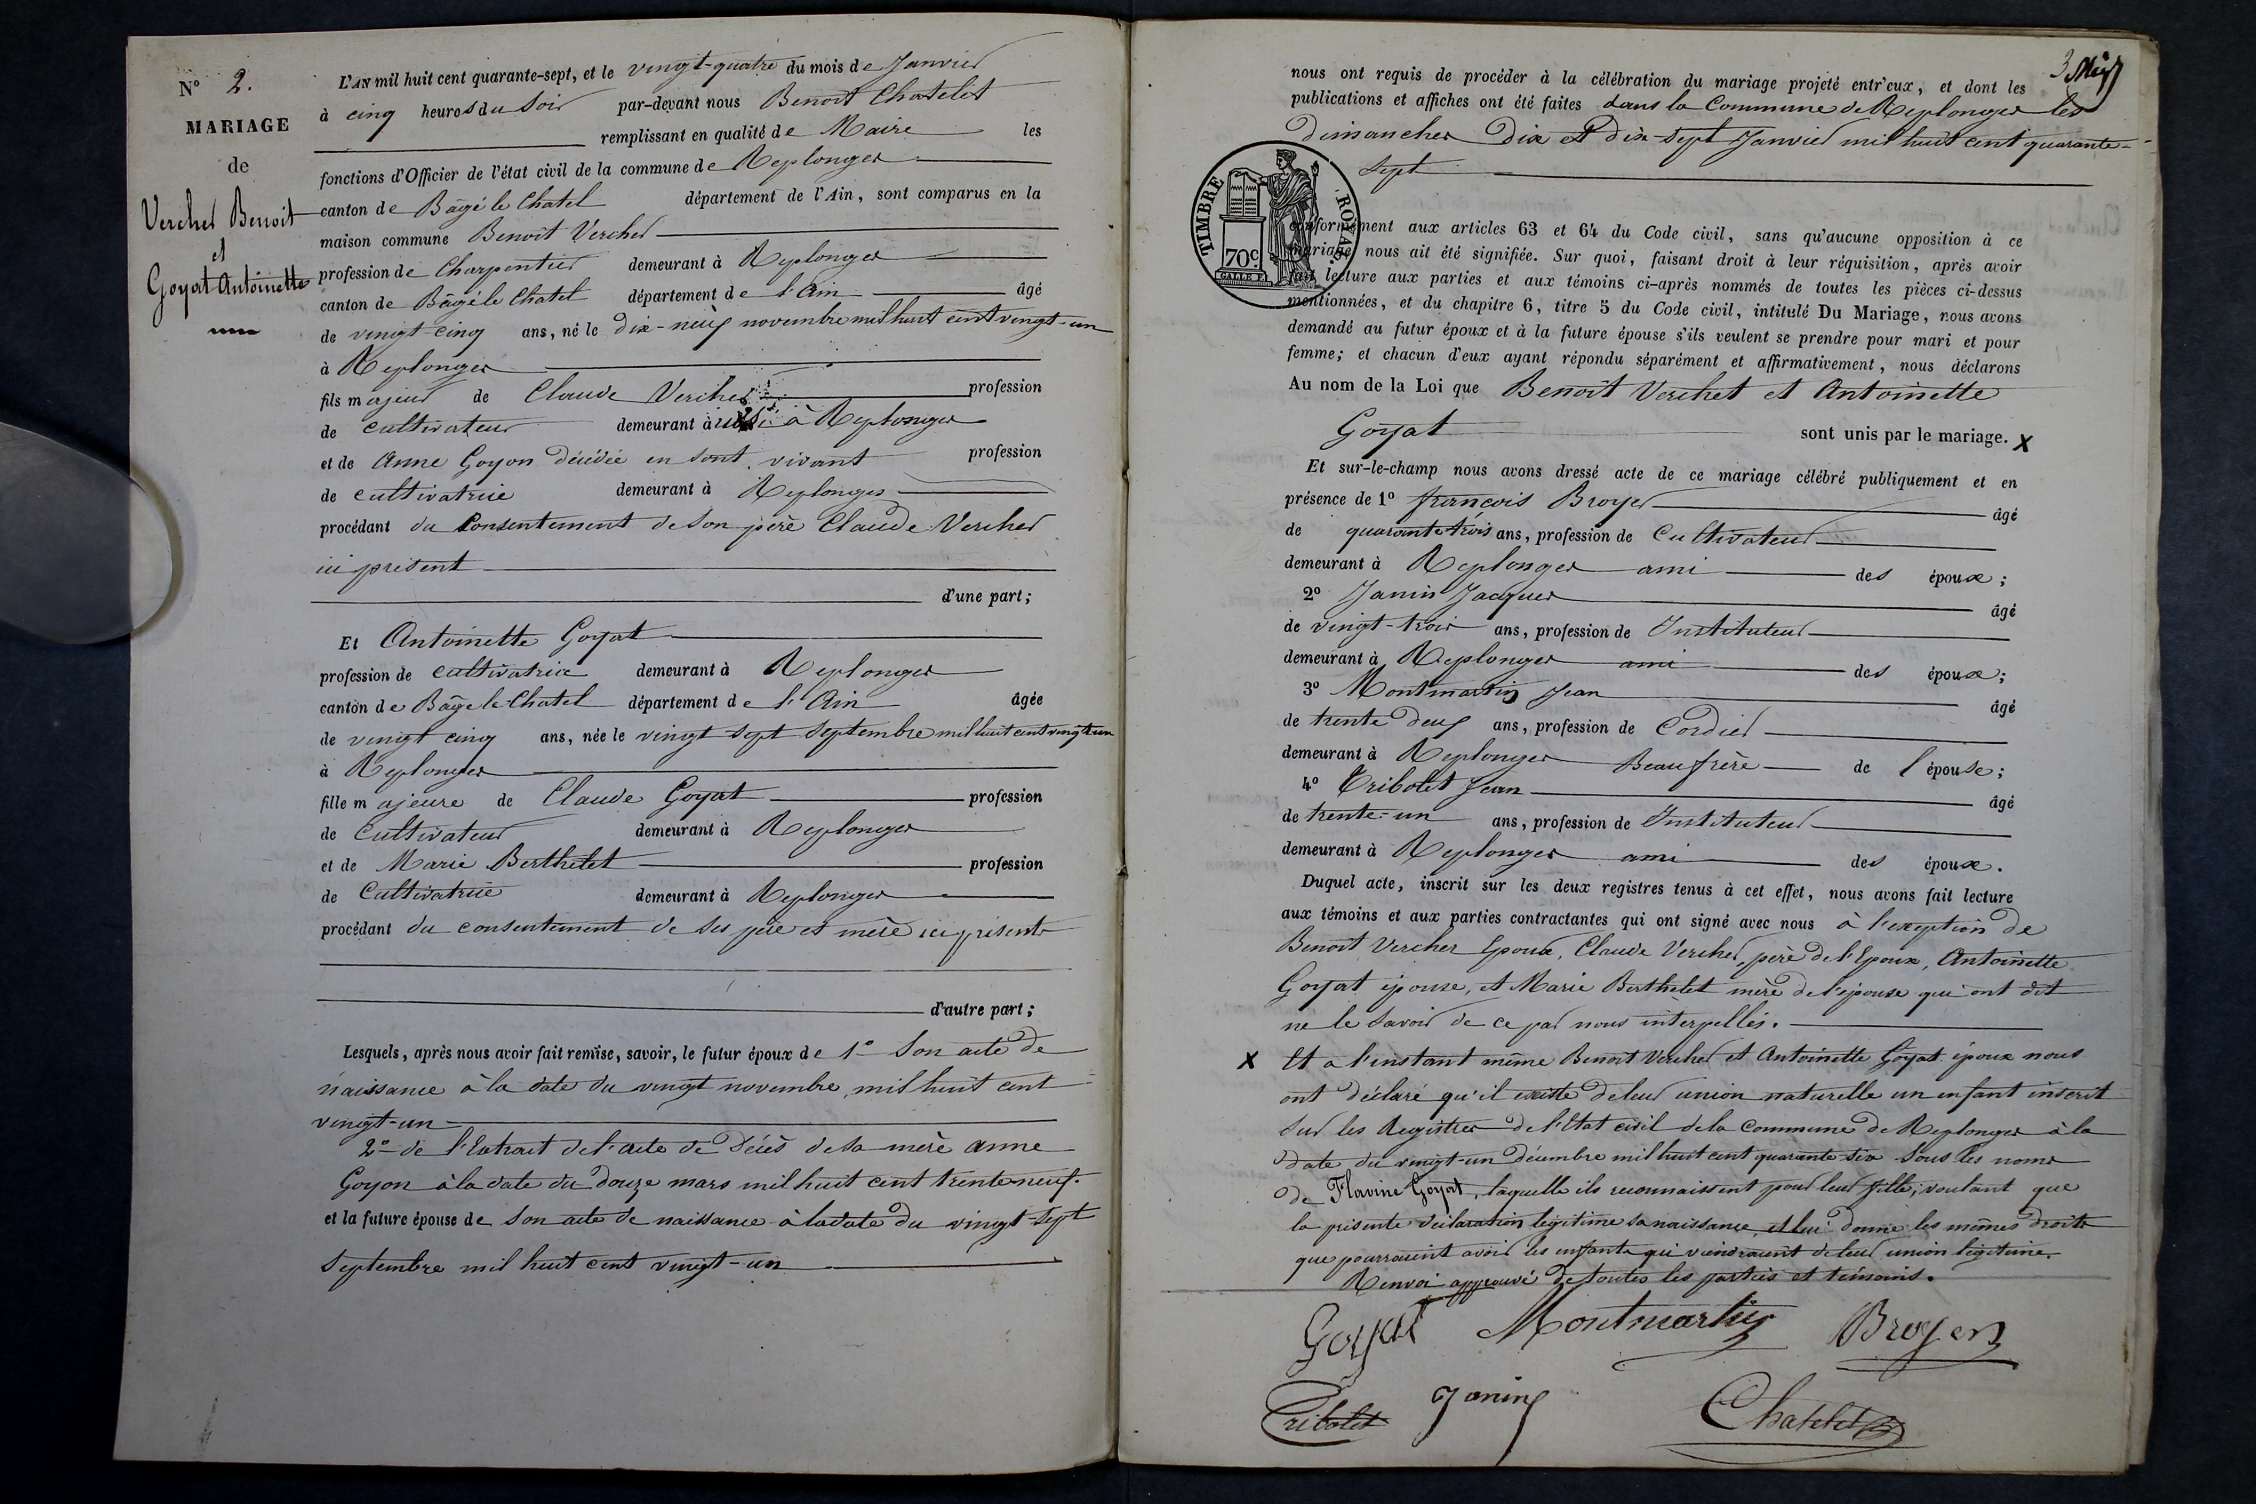 N° 2.
MARIAGE
de
Vercher Benoit
et
Goyat Antoinette
L'AN mil huit cent quarante-sept, et le vingt-quatre du mois de Janvier
à cinq heures du Soir par-devant nous Benoit Chatelet
remplissant en qualité de Maire les
fonctions d'Officier de l'état civil de la commune de Replonges
canton de Bâgé le Chatel département de l'Ain, sont comparus en la
maison commune Benoit Vercher
profession de Charpentier demeurant à Replonges
canton de Bâgé le Chatel département de l'Ain âgé
de vingt-cinq ans, né le dix-neuf novembre mil huit cent vingt-un
à Replonges
fils majeur de Claude Vercher profession
de cultivateur demeurant à à Replonges
et de Anne Goyon décédée en sont vivant profession
de cultivatrice demeurant à Replonges
procédant du Consentement de son père Claude Vercher
ici présent
d'une part;
Et Antoinette Goyat
profession de cultivatrice demeurant à Replonges
canton de Bâgé le Chatel département de l'Ain âgée
de vingt cinq ans, née le vingt sept Septembre mil huit cent vingt un
à Replonges
fille majeure de Claude Goyat profession
de Cultivateur demeurant à Replonges
et de Marie Berthelet profession
de Cultivatrice demeurant à Replonges
procédant du consentement de ses père et mère ici présents
d'autre part;
Lesquels, après nous avoir fait remise, savoir, le futur époux de 1° Son acte de
naissance à la date du vingt novembre mil huit cent
vingt-un
2° de l'Extrait de l'acte de Décès de sa mère Anne
Goyon à la date du douze mars mil huit cent trente-neuf.
et la future épouse de Son acte de naissance à la date du vingt-sept
Septembre mil huit cent vingt-un
nous ont requis de procéder à la célébration du mariage projeté entr'eux, et dont les
publications et affiches ont été faites dans la Commune de Replonges les
dimanches Dix et dix-sept Janvier mil huit cent quarante-
sept
TIMBRE ROYAL
70c
conformément aux articles 63 et 64 du Code civil, sans qu'aucune opposition à ce
mariage nous ait été signifiée. Sur quoi, faisant droit à leur réquisition, après avoir
fait lecture aux parties et aux témoins ci-après nommés de toutes les pièces ci-dessus
mentionnées, et du chapitre 6, titre 5 du Code civil, intitulé Du Mariage, nous avons
demandé au futur époux et à la future épouse s'ils veulent se prendre pour mari et pour
femme; et chacun d'eux ayant répondu séparément et affirmativement, nous déclarons
Au nom de la Loi que Benoit Verchet et Antoinette
Goyat sont unis par le mariage. X
Et sur-le-champ nous avons dressé acte de ce mariage célébré publiquement et en
présence de 1° françois Broyer âgé
de quarante-trois ans, profession de Cultivateur
demeurant à Replonges ami des époux;
2° Janin Jacques âgé
de vingt-trois ans, profession de Instituteur
demeurant à Replonges ami des époux;
3° Montmartin Jean âgé
de trente deux ans, profession de Cordier
demeurant à Replonges Beau frère de l'épouse;
4° Tribolet Jean âgé
de trente-un ans, profession de Instituteur
demeurant à Replonges ami des époux.
Duquel acte, inscrit sur les deux registres tenus à cet effet, nous avons fait lecture
aux témoins et aux parties contractantes qui ont signé avec nous à l'exeption de
Benoit Vercher Epoux, Claude Vercher, père de l'Epoux, Antoinette
Goyat épouse, et Marie Berthelet mère de l'épouse qui ont dit
ne le savoir de ce par nous interpellés.
X Et a l'instant même Benoit Vercher et Antoinette Goyat époux nous
ont déclaré qu'il existe de leur union naturelle un enfant inscrit
Sur les Registres de l'Etat civil de la Commune de Replonges à la
date du vingt-un décembre mil huit cent quarante six sous les noms
de Flavine Goyat, laquelle ils reconnaissent pour leur fille; voulant que
la présente déclaration légitime sa naissance, et lui donne les mêmes droits
que pourraient avoir les enfants qui viendraient de leur union légitime.
Renvoi approuvé de toutes les parties et témoins.
Goyat Montmartin Broyer
Tribolet Janin Chatelet